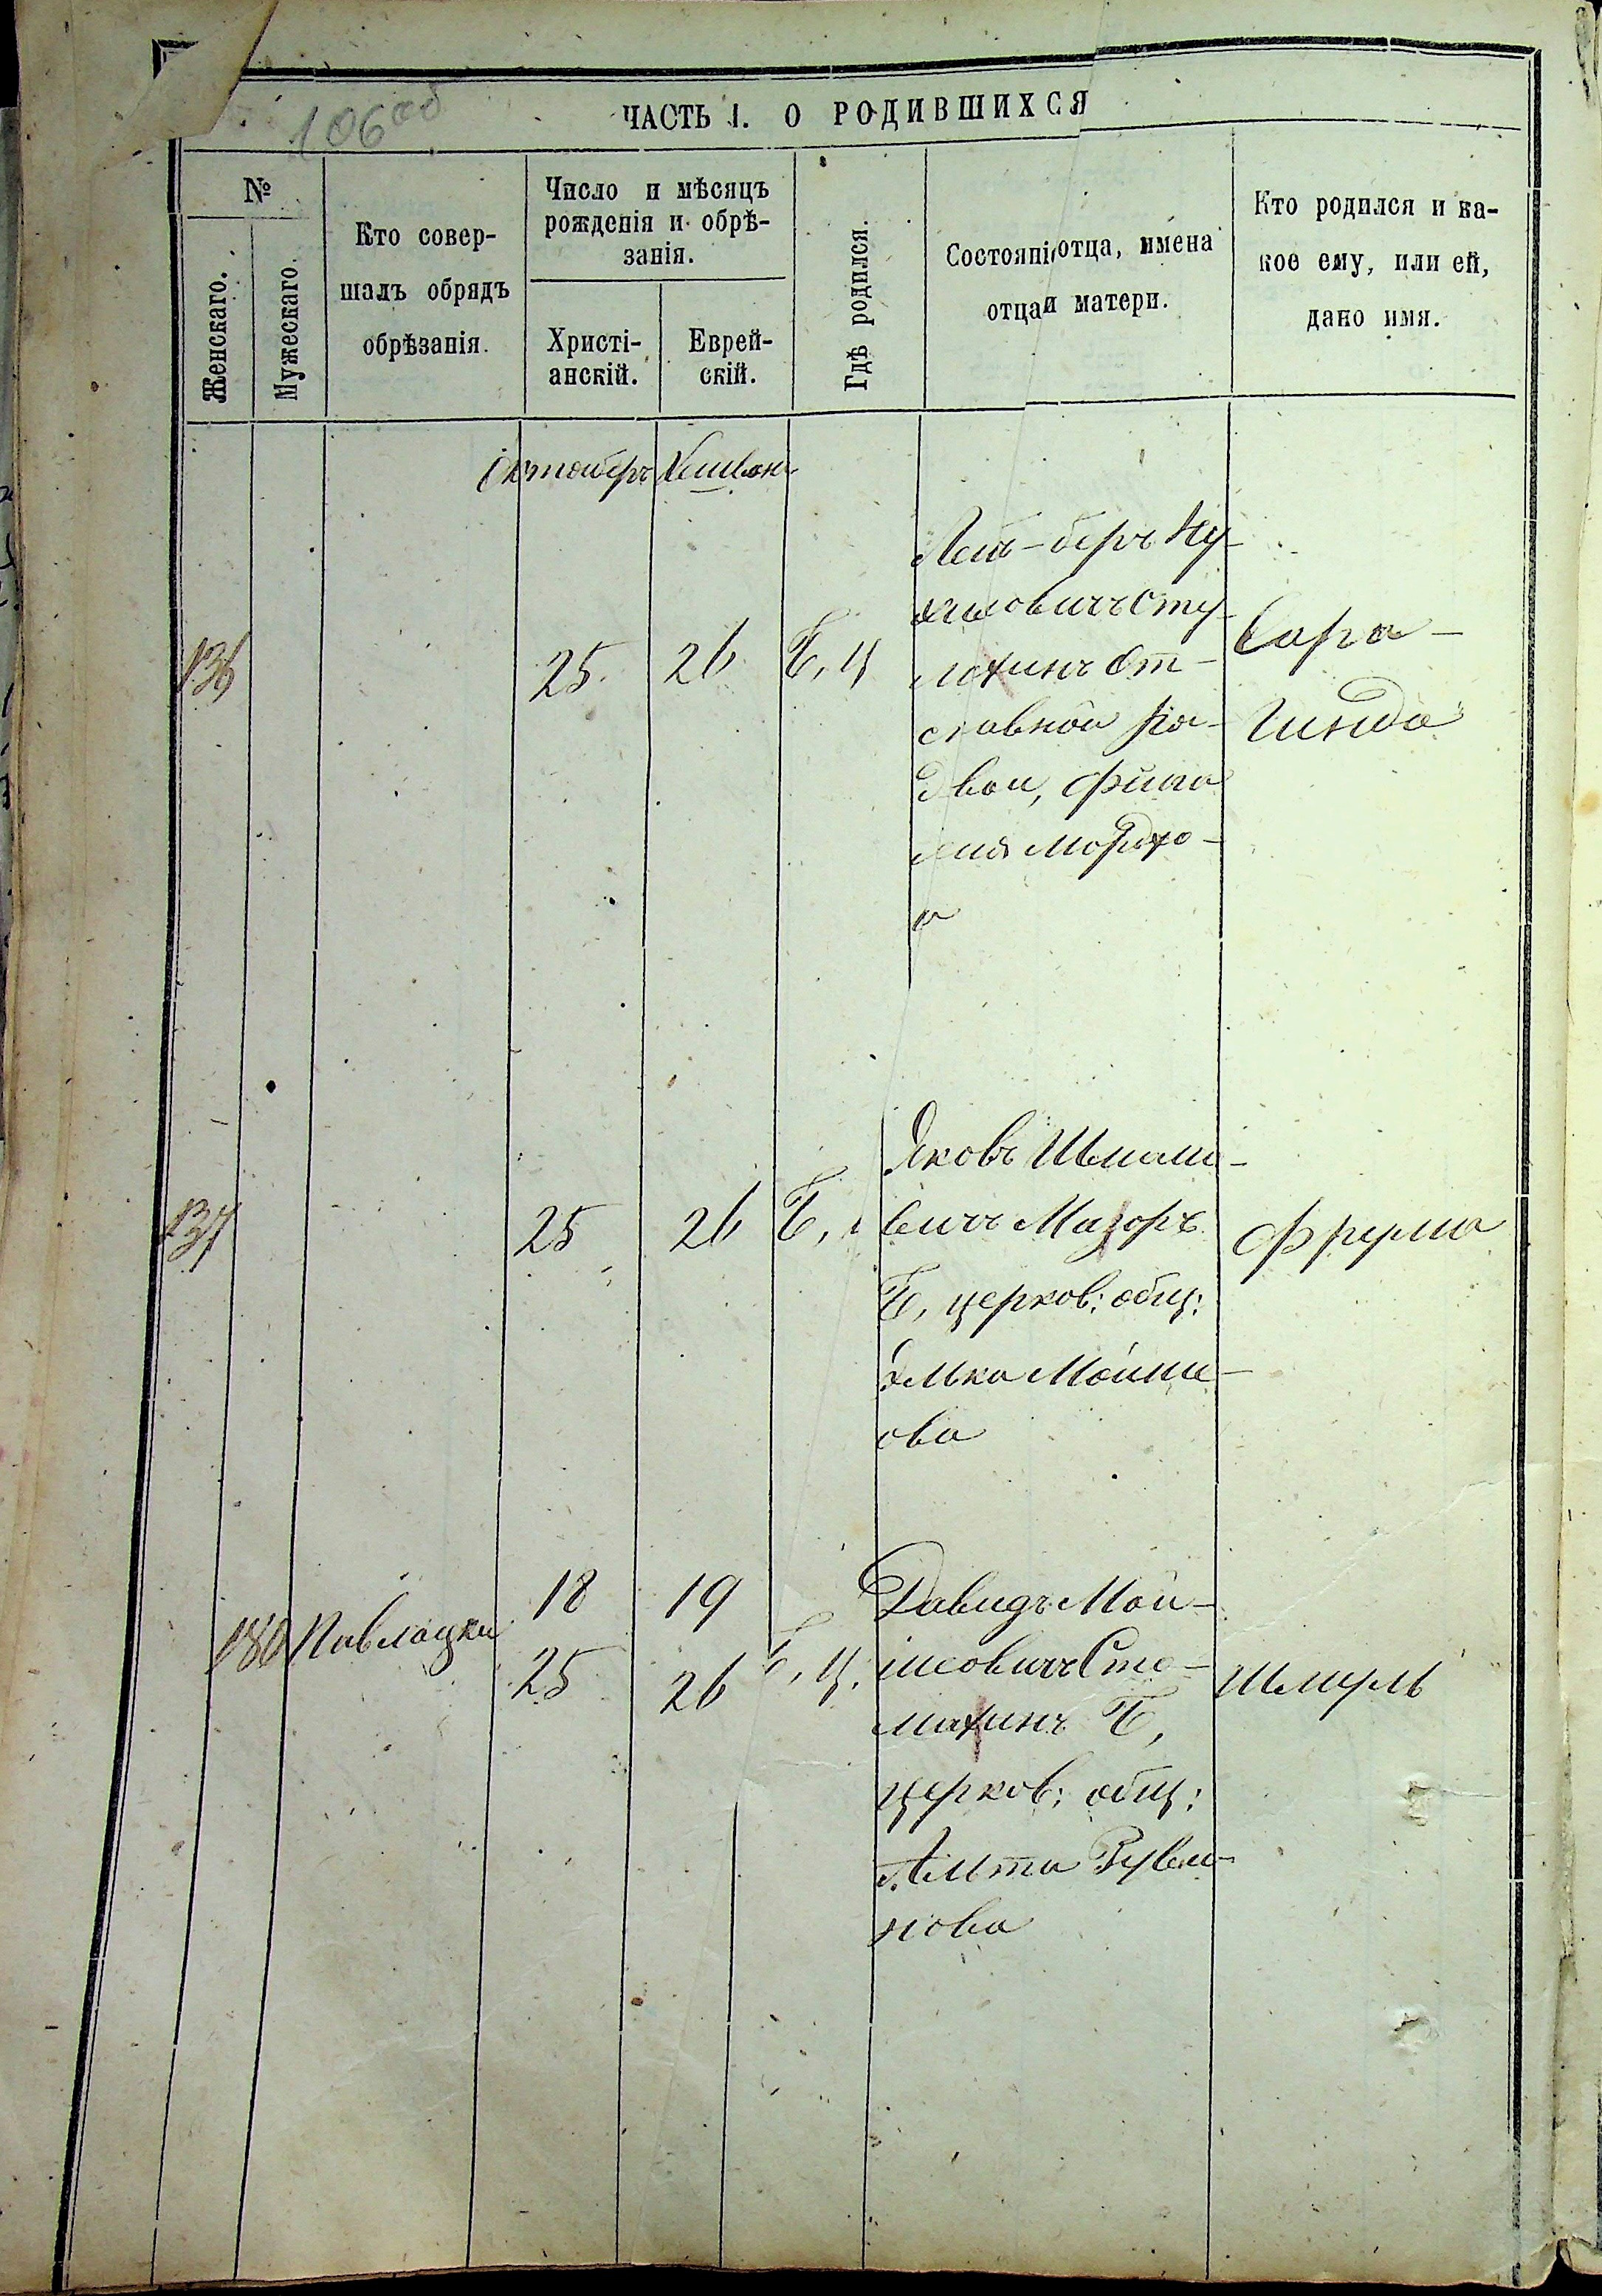 106 об
ЧАСТЬ I. О РОДИВШИХСЯ
№
Женскаго.
Мужескаго.
Кто совер-
шалъ обрядъ
обрѣзанія.
Число и мѣсяцъ
рожденія и обрѣ-
занія.
Христі-
анскій.
Еврей-
скій.
Гдѣ родился.
Состояніе отца, имена
отца и матери.
Кто родился и ка-
кое ему, или ей,
дано имя.
Октоберъ Хешванъ
136
25
26
Б, ц
Лейб-беръ Ну
химовичъ Сту
махинъ От-
ставной Ря-
двои,
Мордхо-
а
Сара-
Гинда
137
25
26
Б,
Яковъ Шмаи-
вичъ Мазоръ
Б, церков: общ:
Элька Мойше-
ова
Фрума
180
Павлоцки
18
19
25
26
Б, ц.
Давидъ Мой-
шовичъ Сто-
махинъ Б,
церков: общ:
Альта Руви-
нова
Шмуль